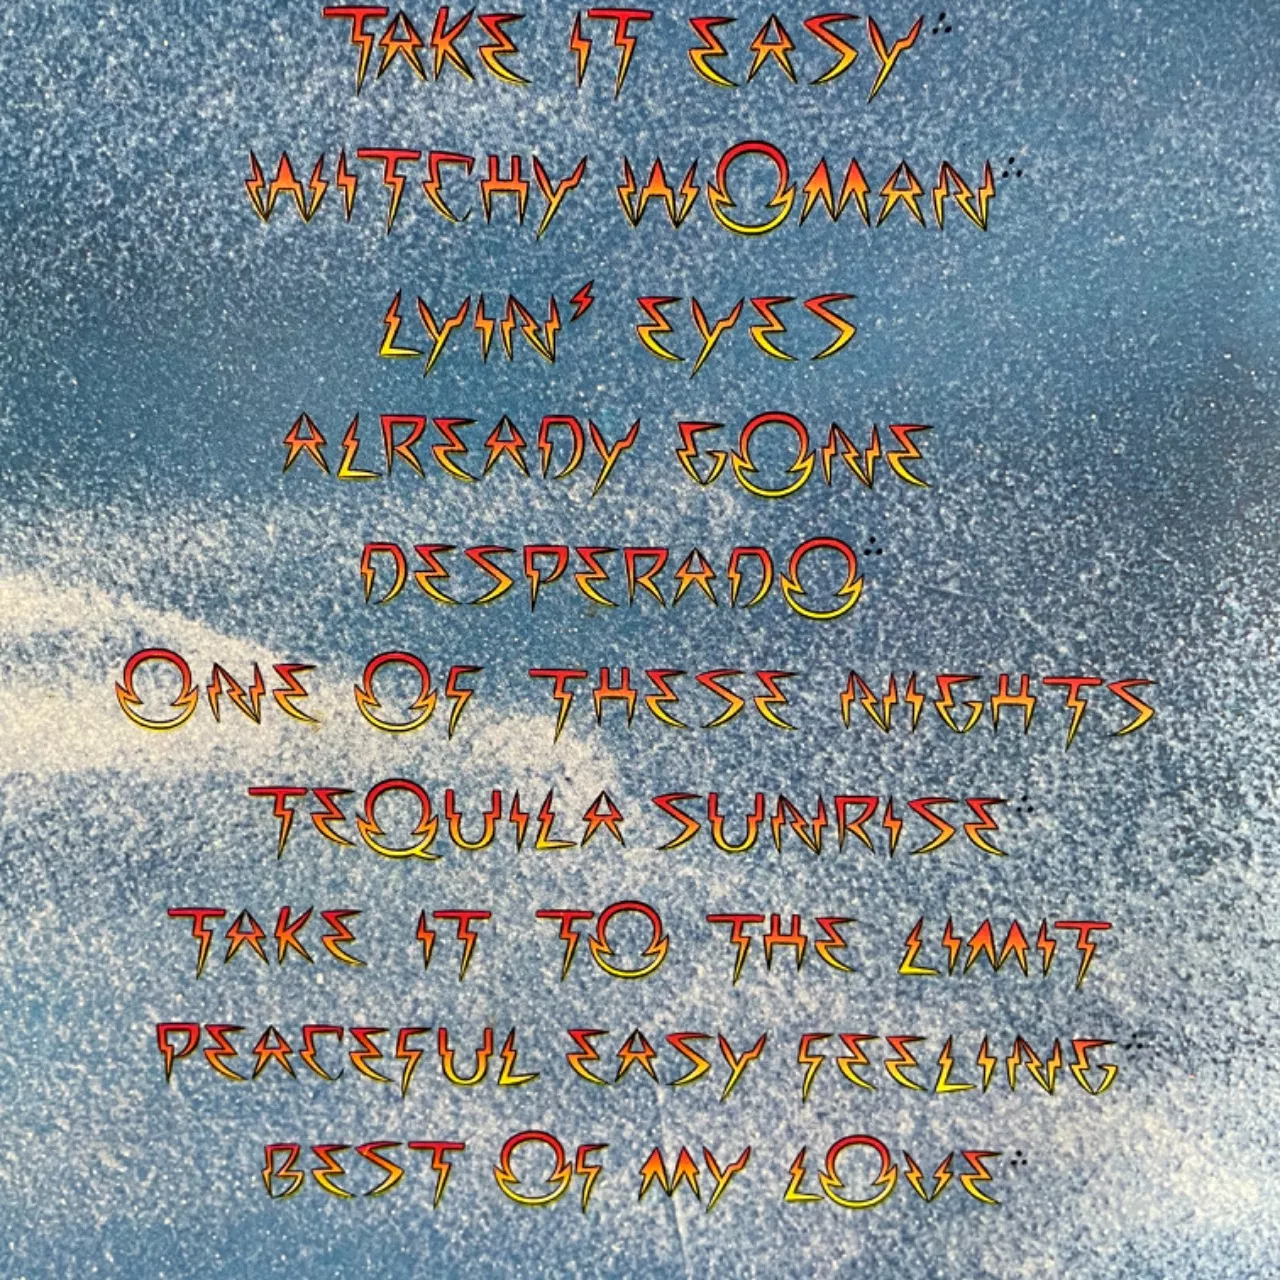 TAKE IT EASY∴
WITCHY WOMAN∴
LYIN' EYES
ALREADY GONE
DESPERADO∴
ONE OF THESE NIGHTS
TEQUILA SUNRISE∴
TAKE IT TO THE LIMIT
PEACEFUL EASY FEELING∴
BEST OF MY LOVE∴